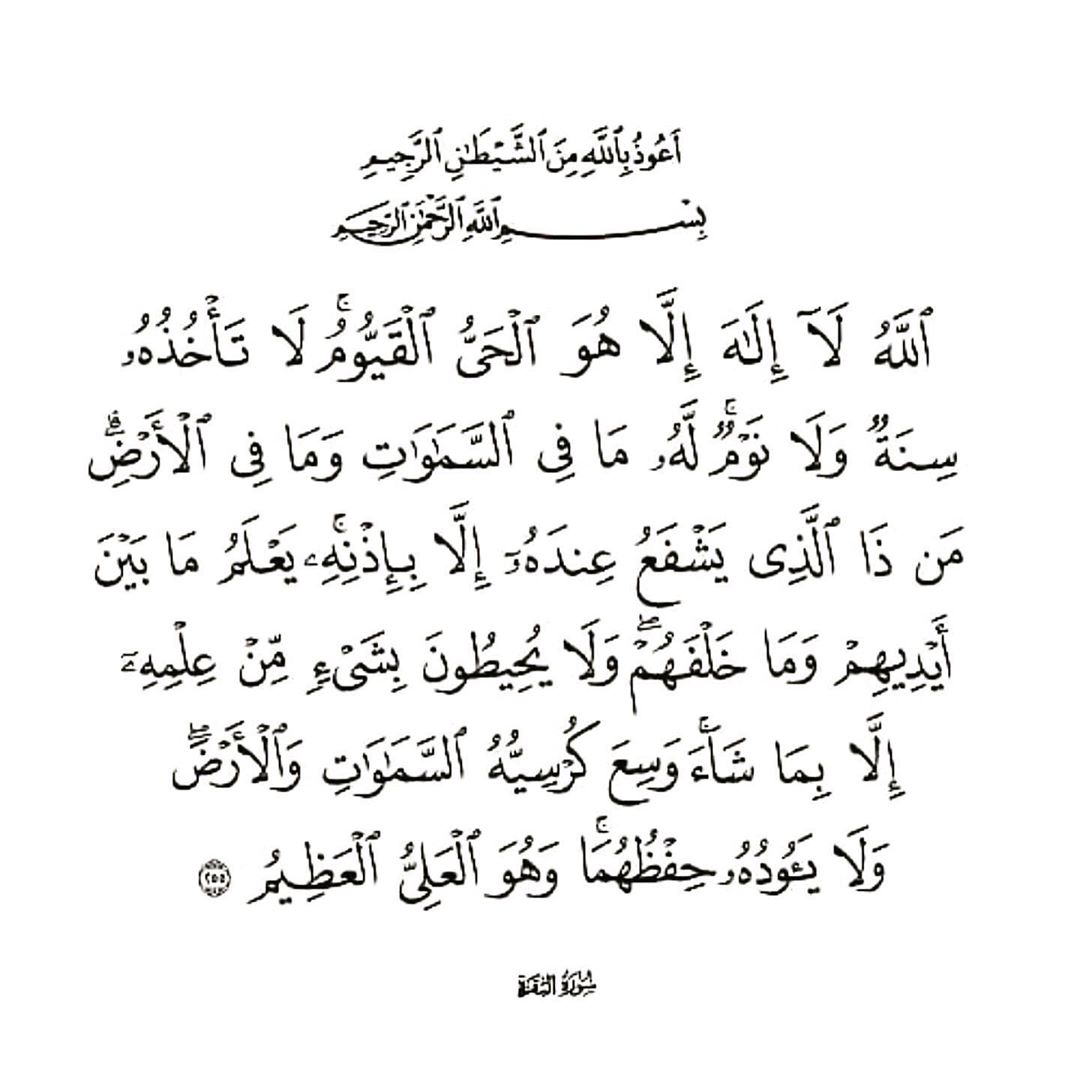 أَعُوذُ بِٱللَّهِ مِنَ ٱلشَّيْطَٰنِ ٱلرَّجِيمِ
بِسْمِ ٱللَّهِ ٱلرَّحْمَٰنِ ٱلرَّحِيمِ
ٱللَّهُ لَآ إِلَٰهَ إِلَّا هُوَ ٱلْحَىُّ ٱلْقَيُّومُ ۚ لَا تَأْخُذُهُۥ
سِنَةٌ وَلَا نَوْمٌ ۚ لَّهُۥ مَا فِى ٱلسَّمَٰوَٰتِ وَمَا فِى ٱلْأَرْضِ ۗ
مَن ذَا ٱلَّذِى يَشْفَعُ عِندَهُۥٓ إِلَّا بِإِذْنِهِۦ ۚ يَعْلَمُ مَا بَيْنَ
أَيْدِيهِمْ وَمَا خَلْفَهُمْ ۖ وَلَا يُحِيطُونَ بِشَىْءٍ مِّنْ عِلْمِهِۦٓ
إِلَّا بِمَا شَآءَ ۚ وَسِعَ كُرْسِيُّهُ ٱلسَّمَٰوَٰتِ وَٱلْأَرْضَ ۖ
وَلَا يَـُٔودُهُۥ حِفْظُهُمَا ۚ وَهُوَ ٱلْعَلِىُّ ٱلْعَظِيمُ ٢٥٥
سُورَةُ البَقَرَةِ